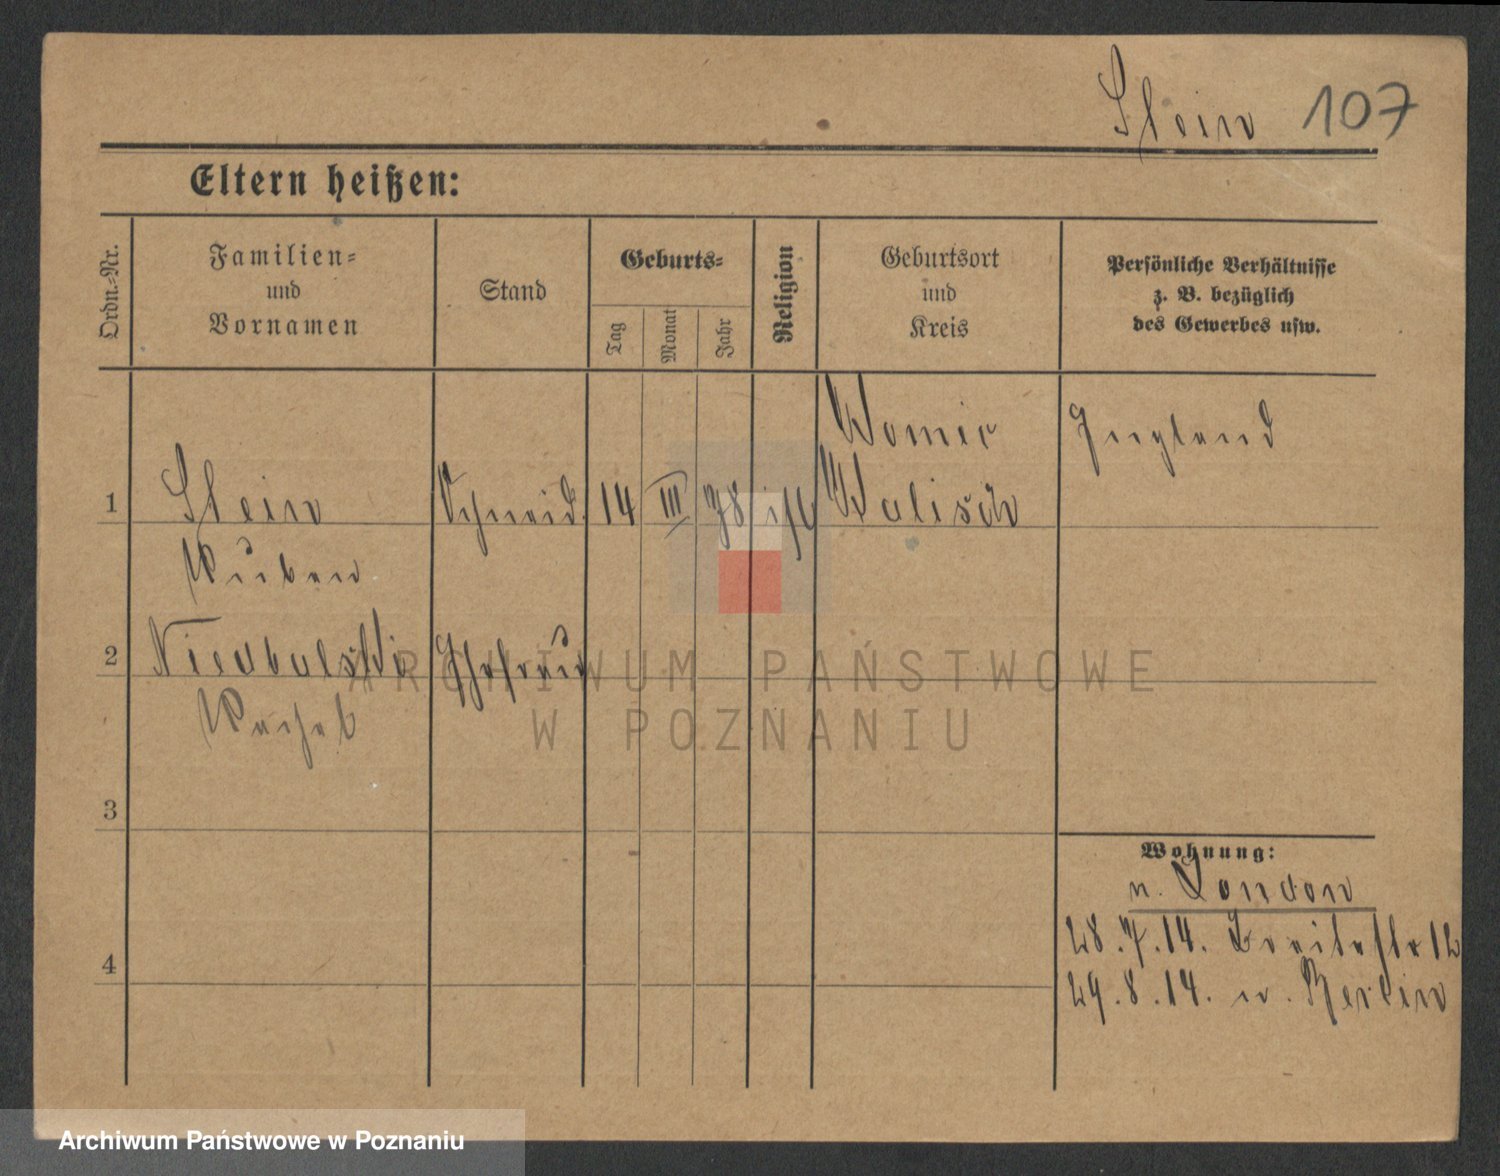 Stein 107
Eltern heißen:
Ordn.-Nr.
Familien-
und
Vornamen
Stand
Geburts-
Tag
Monat
Jahr
Religion
Geburtsort
und
Kreis
Persönliche Verhältnisse
z. B. bezüglich
des Gewerbes usw.
1
Stein
Ruben
Schneid.
14 III 78
England
2
Niedbalski
Ehefrau
3
4
Wohnung:
n. London
28.7.14. Breitestr 12
29.8.14. n. Berlin
ARCHIWUM PAŃSTWOWE
W POZNANIU
Archiwum Państwowe w Poznaniu